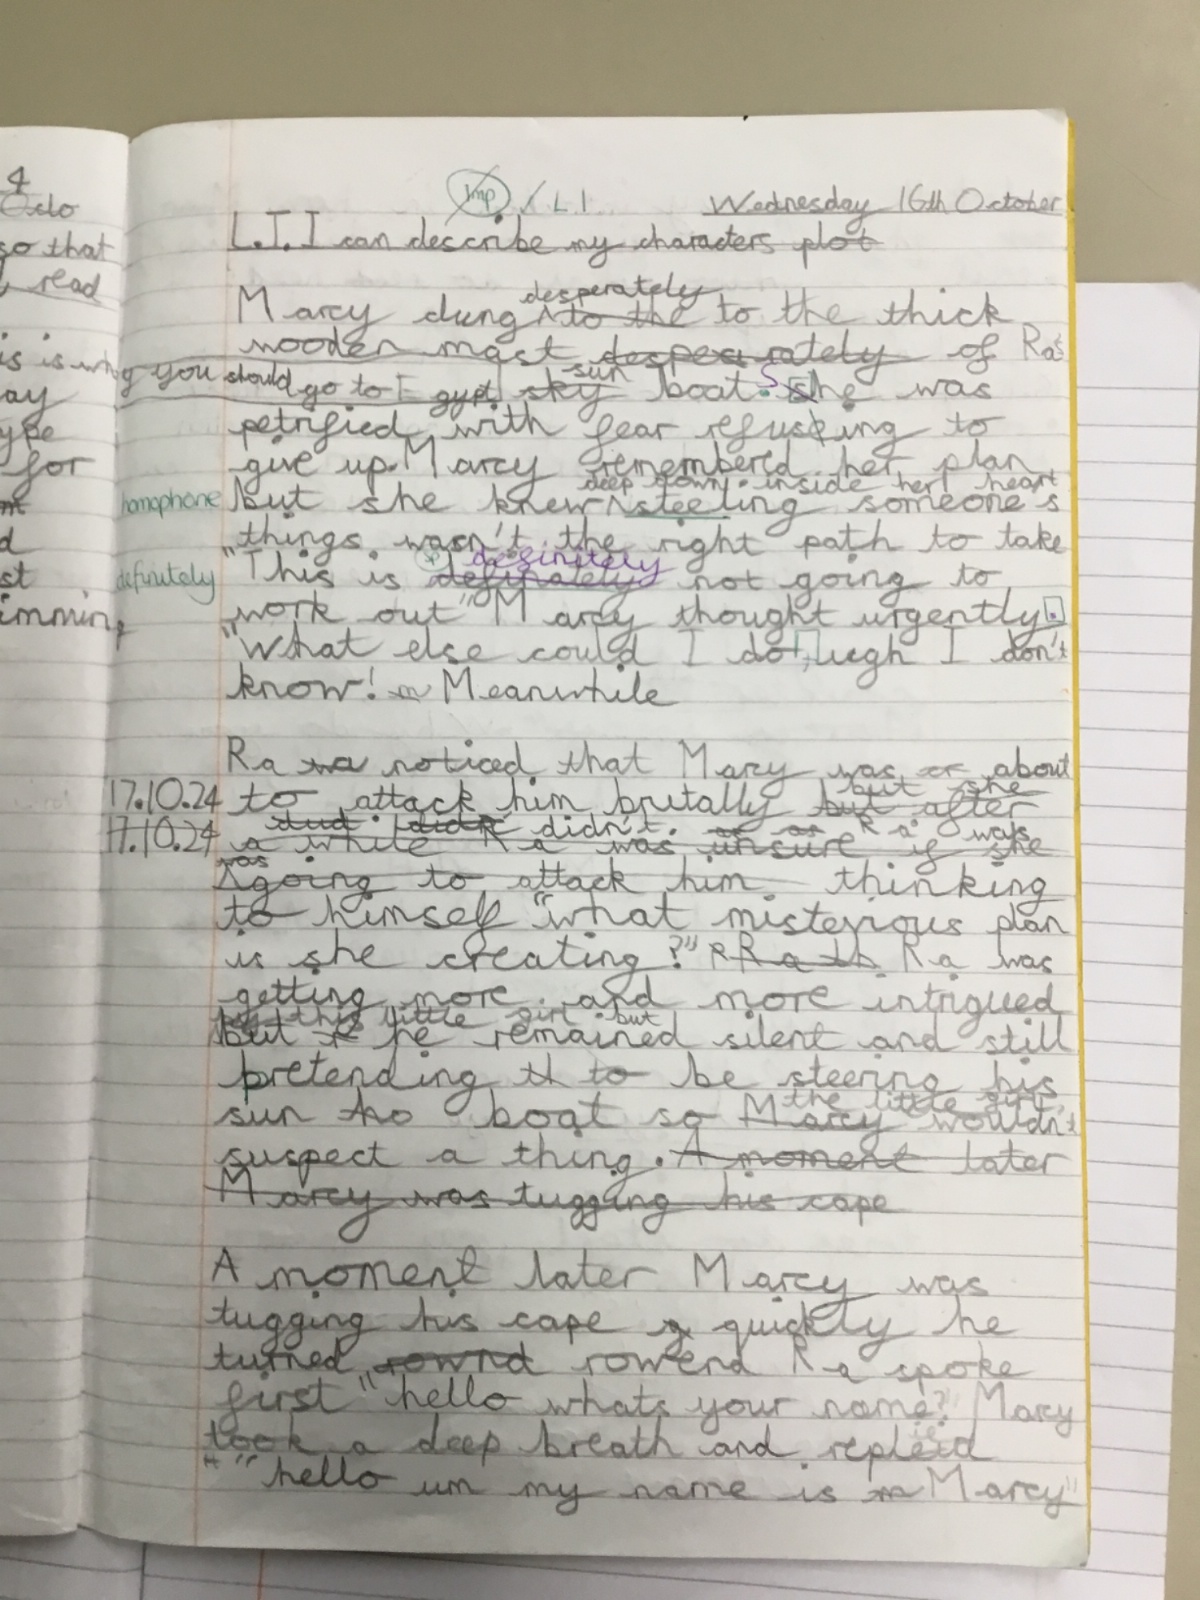 4
Octo
so that
read
is is why you should go to Egypt
ay
ype
for
d
st
imming
Imp / L.I
Wednesday 16th October
L.I. I can describe my characters plot
desperately
Marcy clung ^ to the to the thick
wooden mast desperately of Ra's
sun
sky boat. She was
petrified with fear refusing to
give up. Marcy remembered her plan
deep down inside her heart
homophone
but she knew ^ steeling someone's
things wasn't the right path to take
sp definitely
definitely
"This is definately not going to
work out" Marcy thought urgently.
"What else could I do, ugh I don't
know! Meanwhile
Ra noticed that Marcy was about
but she
17.10.24
to attack him brutally but after
didn't. Ra was
17.10.24
a while Ra was unsure if she
was
^ going to attack him thinking
to himself "what misterious plan
is she creating?" Ra Ra was
getting more and more intrigued
this little girl but
but he remained silent and still
pretending to be steering his
the little girl
sun boat so Marcy wouldn't
suspect a thing. A moment later
Marcy was tugging his cape
A moment later Marcy was
tugging his cape quickly he
turned rownd rowend Ra spoke
first "hello whats your name? Marcy
took a deep breath and repleid
"hello um my name is Marcy"